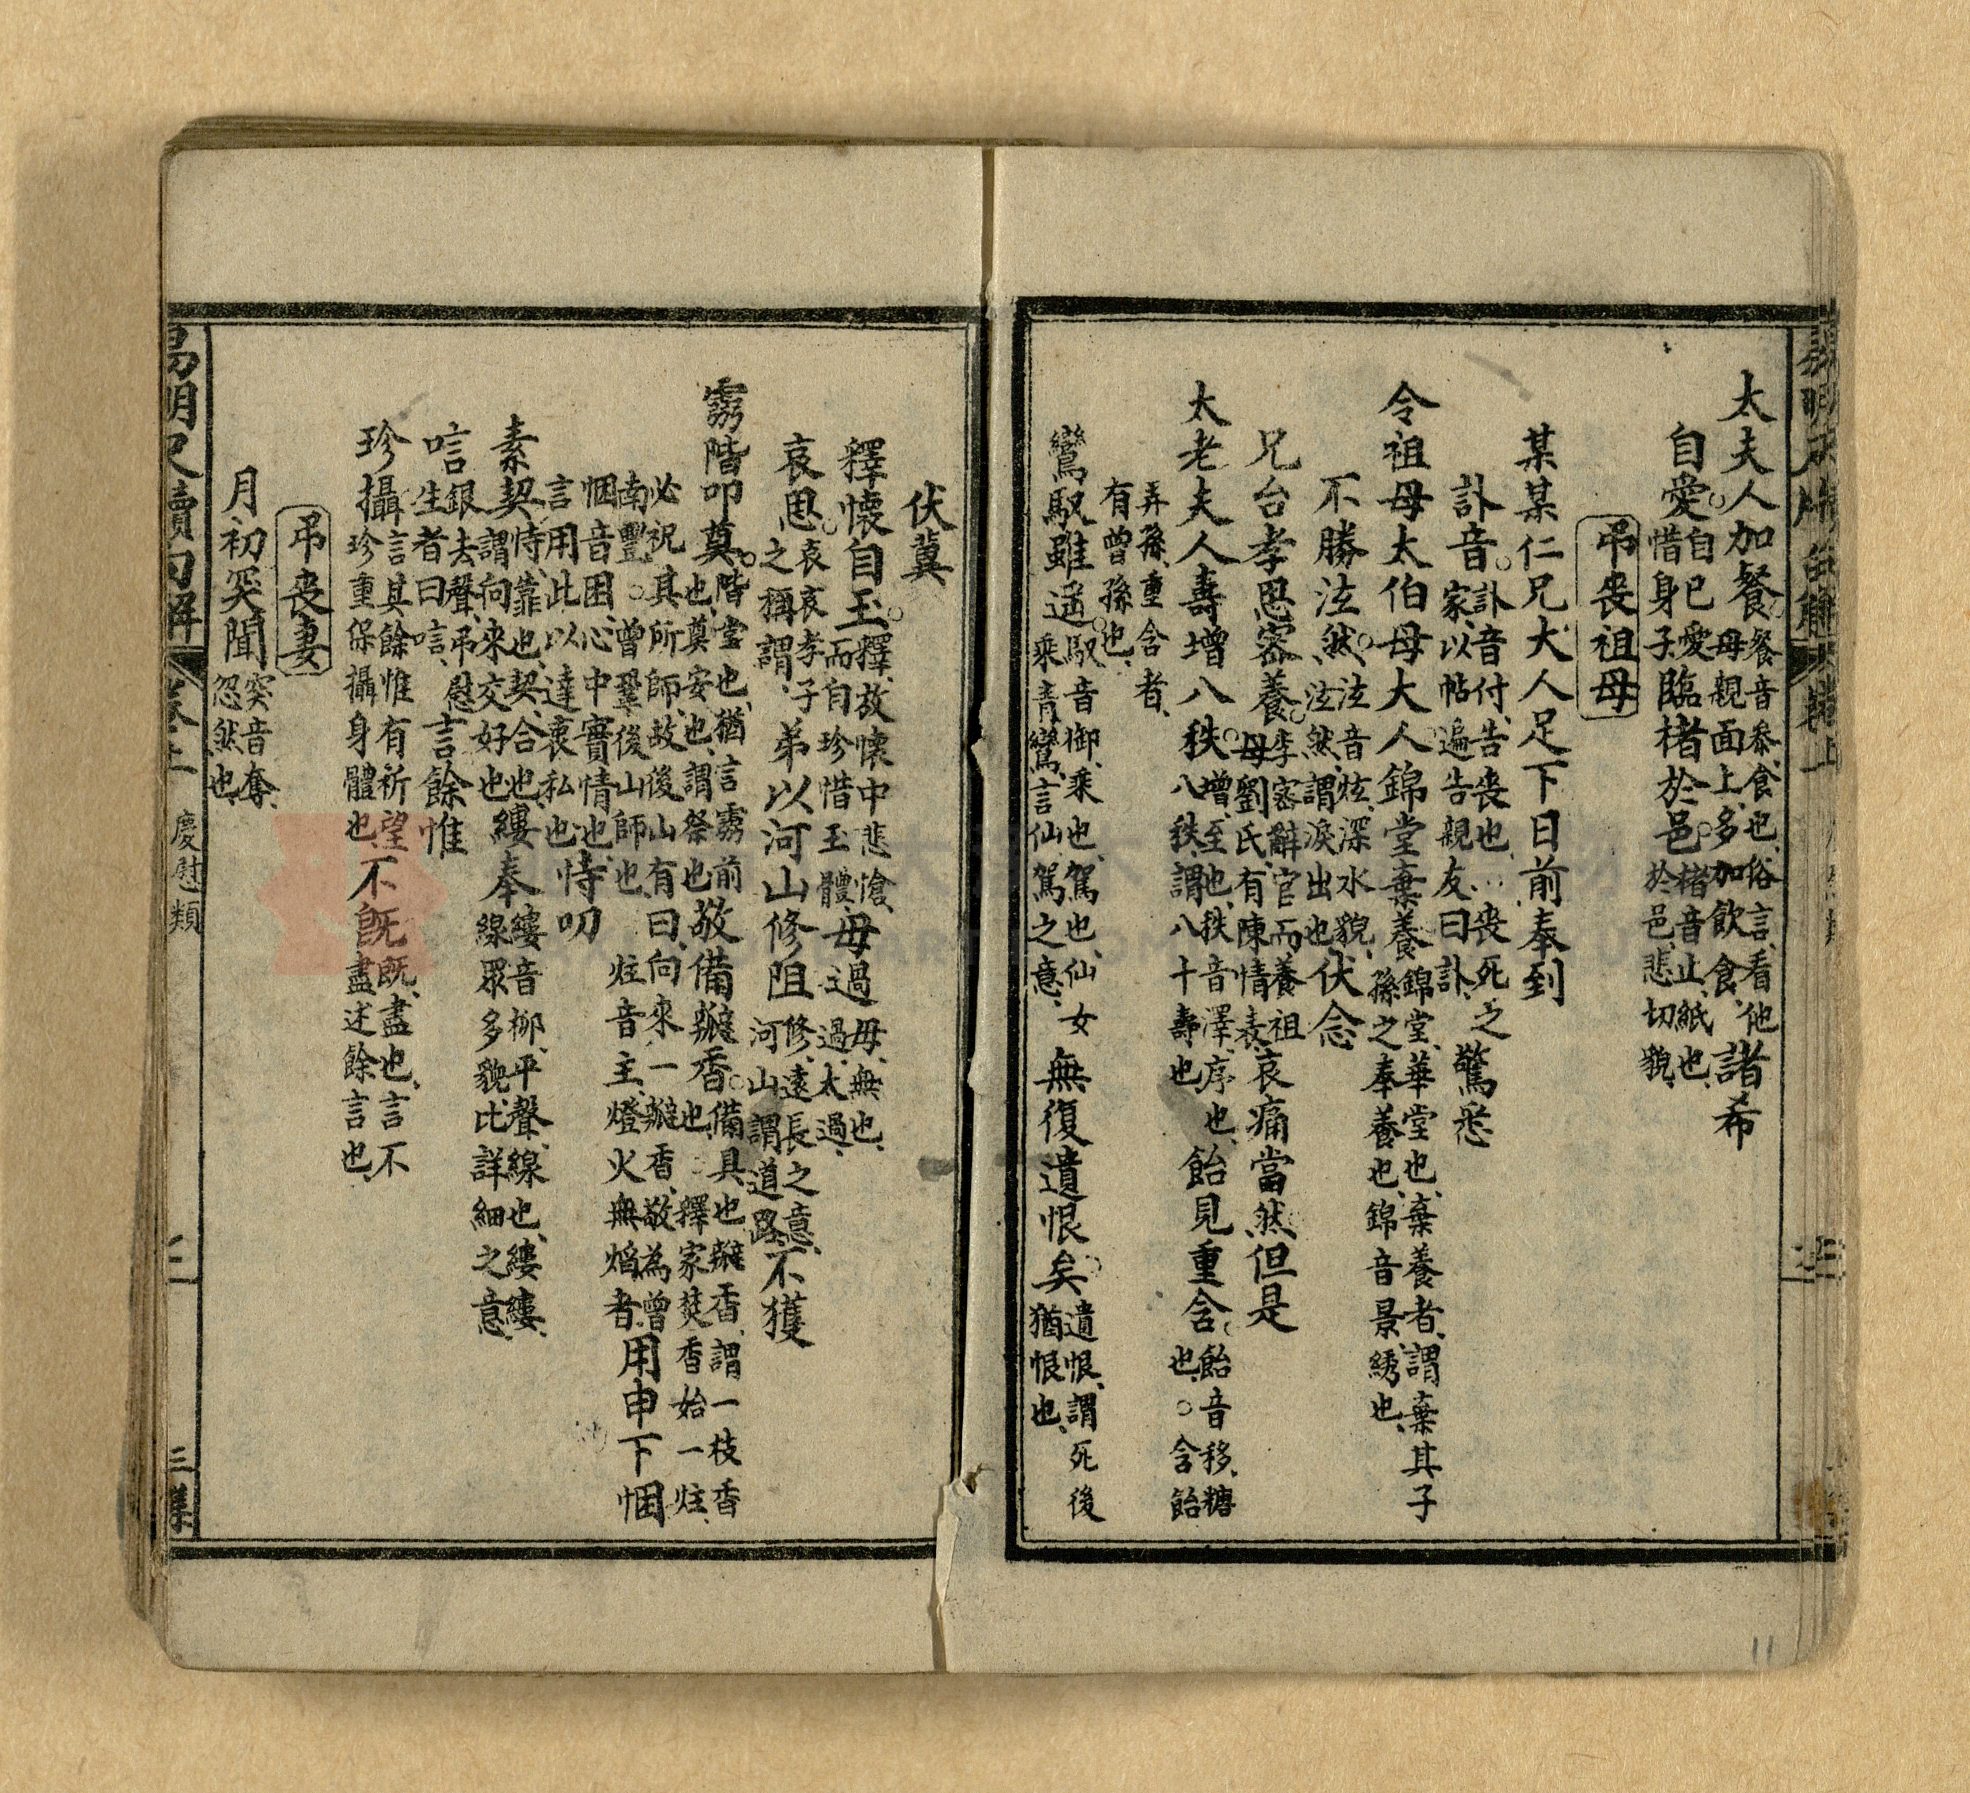 太夫人加餐餐音參食也俗言看他母親面上多加飲食諸希
自愛自己愛惜身子臨楮於邑楮音止紙也於邑悲切貌
弔喪祖母
某某仁兄大人足下日前奉到
訃音訃音付告喪也喪死之家以帖遍告親友曰訃驚悉
令祖母太伯母大人錦堂棄養錦堂華堂也棄養者謂棄其子孫之奉養也錦音景綉也
不勝泫然泫音炫深水貌泫然謂淚出也伏念
兄台孝思密養李密辭官而養祖母劉氏有陳情表哀痛當然但是
太老夫人壽增八秩增至也秩音澤序也八秩謂八十壽也飴見重含飴音移糖也含飴
弄孫重含者有曾孫也
鸞馭雖遥馭音御乘也駕也仙女乘青鸞言仙駕之意無復遺恨矣遺恨謂死後猶恨也
伏冀
釋懷自玉釋放懷中悲愴而自珍惜玉體毋過毋無也過太過
哀思哀哀孝子之稱謂弟以河山修阻修遠長之意河山謂道路不獲
靈階叩奠階堂也猶言靈前也奠安也謂祭也敬備瓣香備具也瓣香謂一枝香也釋家焚香始一炷
必祝其所師故後山有曰向來一瓣香敬為曾南豐曾鞏後山師也炷音主燈火無熖者用申下悃
悃音困心中實情也言用此以達衷私也恃叨
素契恃靠也契合也謂向來交好也縷奉縷音柳平聲線也縷縷線眾多貌比詳細之意
唁銀去聲弔慰生者曰唁言餘惟
珍攝言其餘惟有祈望珍重保攝身體也不既既盡也言不盡述餘言也
弔喪妻
月初突聞突音奪忽然也
昜明尺牘句解
慶慰類
三